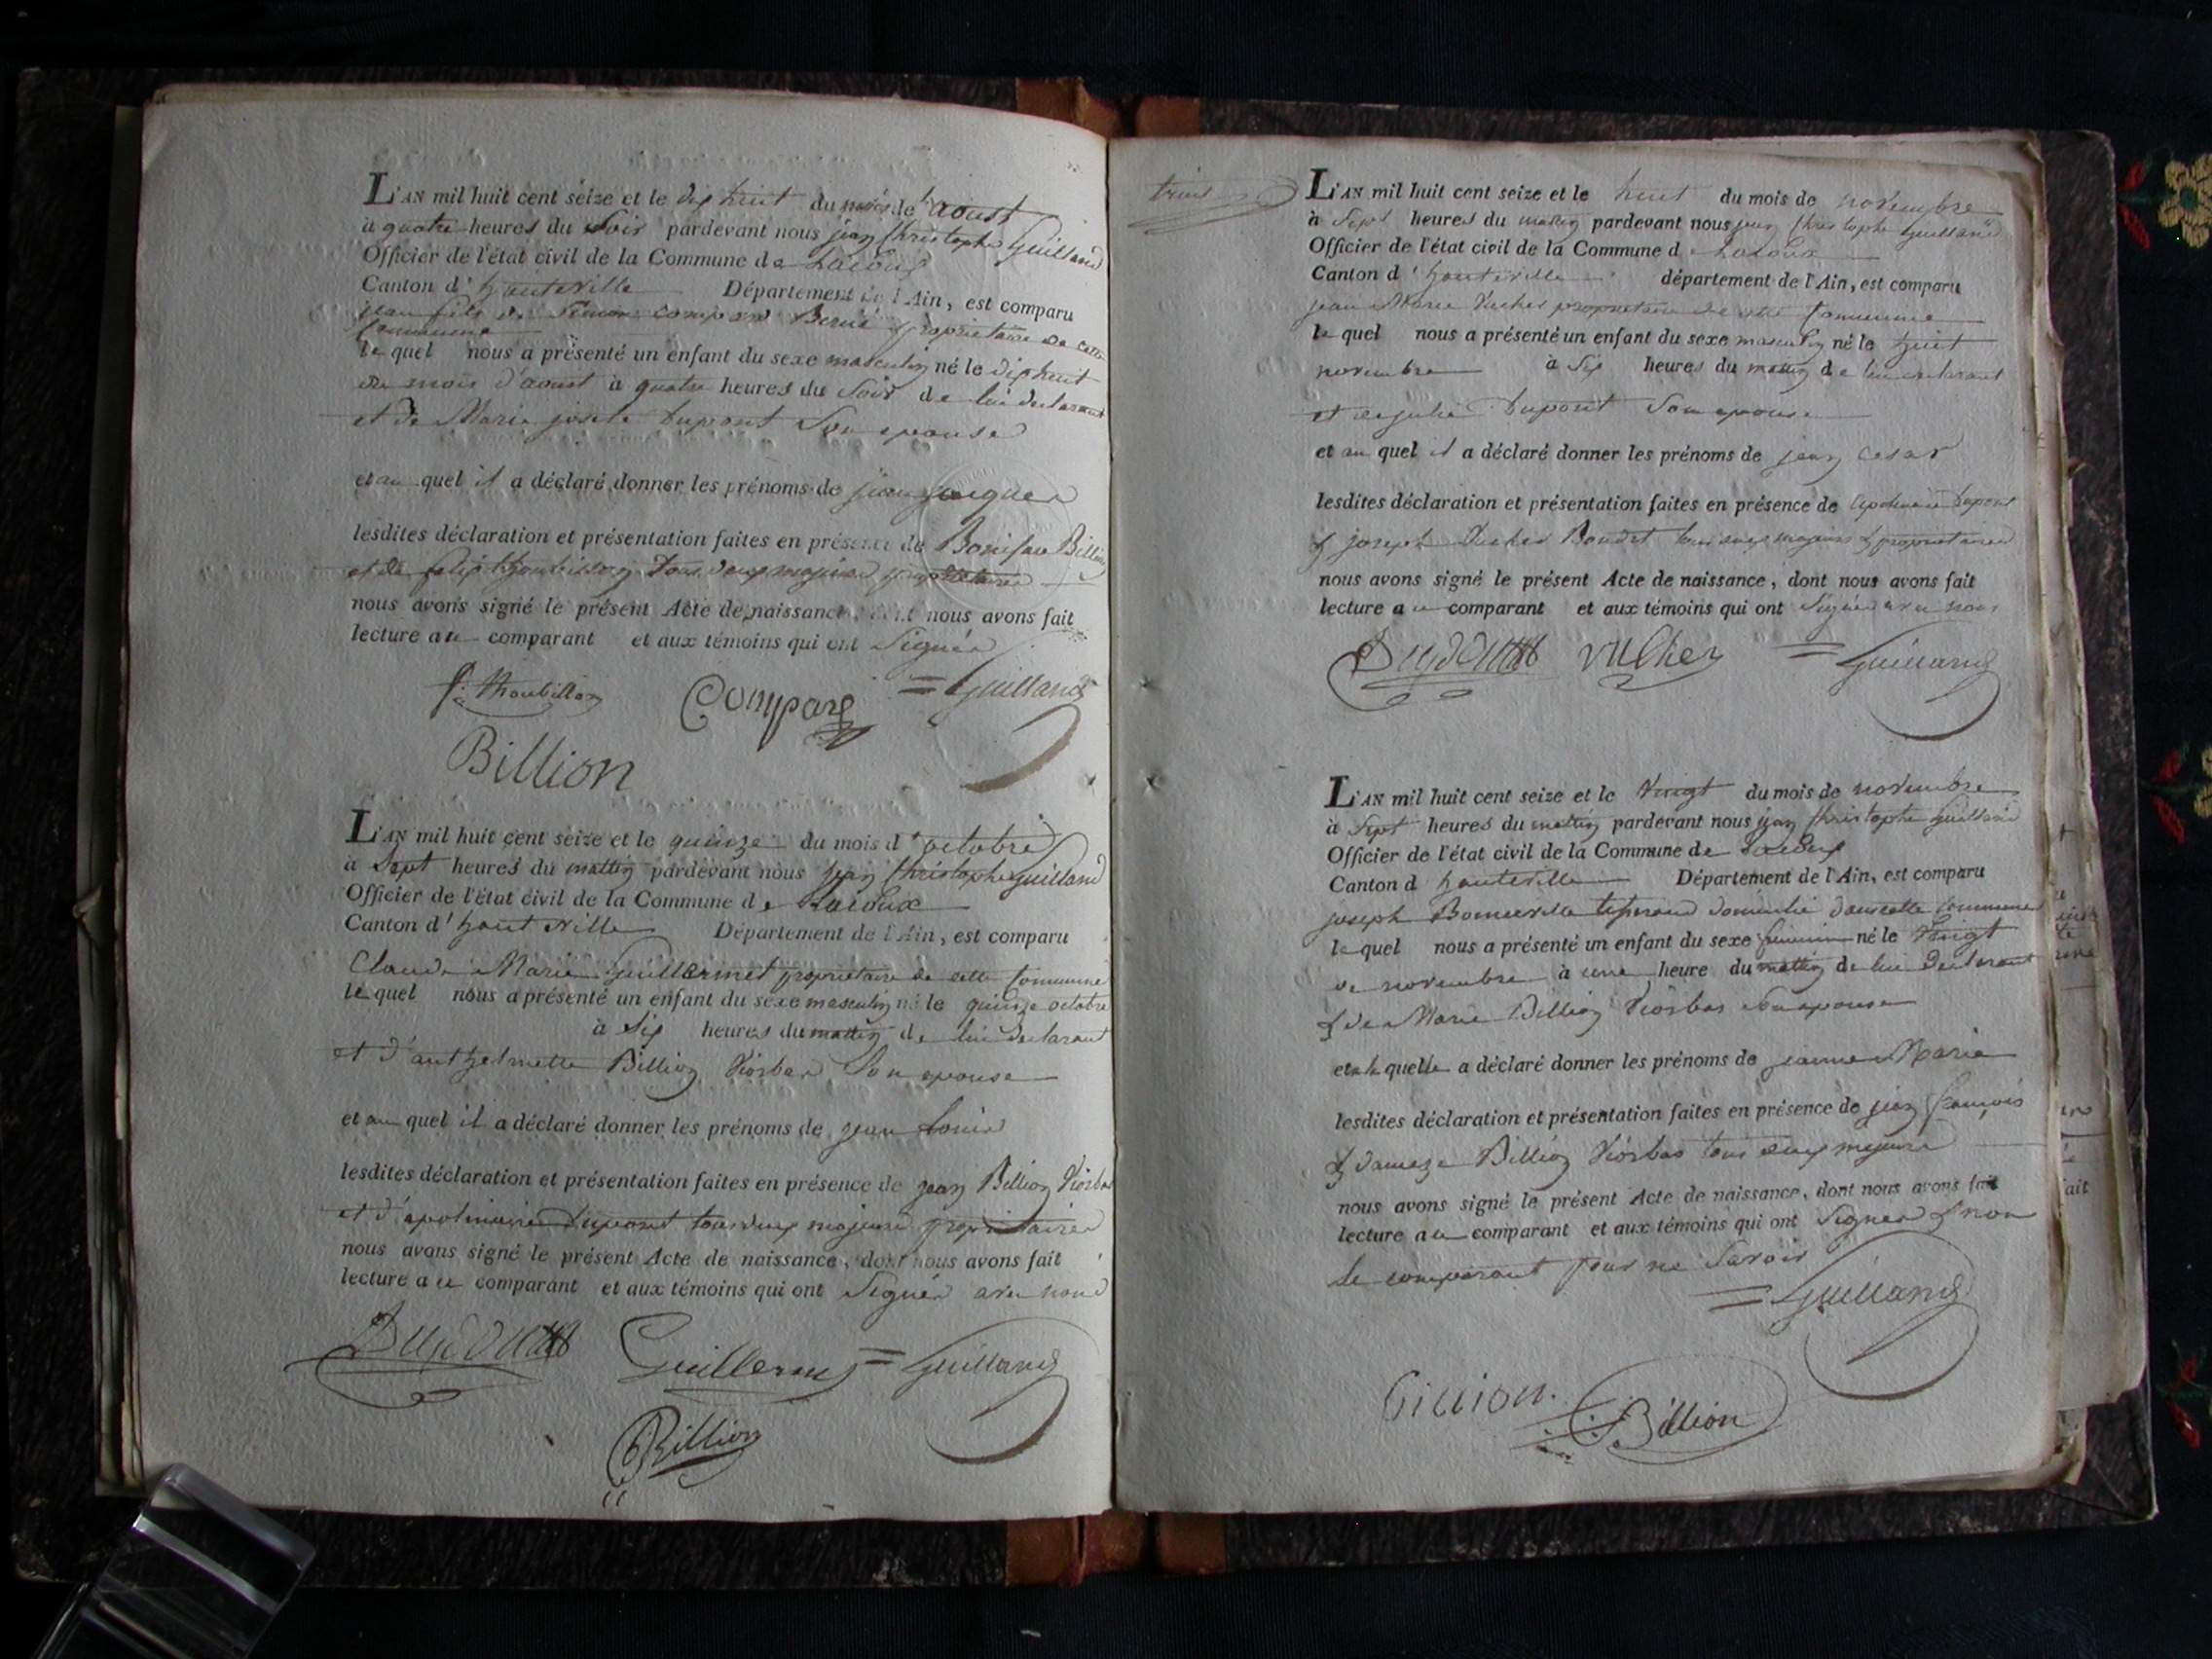 L'AN mil huit cent seize et le dix huit du mois de aoust
à quatre heures du Soir pardevant nous jean Christophe Guilland
Officier de l'état civil de la Commune de Lacoux
Canton d'hauteville Département de l'Ain, est comparu
jean fils de Simon compard propriétaire de cette
Commune
lequel nous a présenté un enfant du sexe masculin né le dix huit
du mois d'aoust à quatre heures du Soir de lui declarant
et de Marie josete Dupont Son epouse
et au quel il a déclaré donner les prénoms de jean jacques
lesdites déclaration et présentation faites en présence de Boniface Billion
et de felix tous deux majeurs propriétaires
nous avons signé le présent Acte de naissance, dont nous avons fait
lecture au comparant et aux témoins qui ont Signés
Compare = Guilland
Billion
L'AN mil huit cent seize et le quinze du mois d'octobre
à Sept heures du mattin pardevant nous jean Christophe Guilland
Officier de l'état civil de la Commune de Lacoux
Canton d'hauteville Département de l'Ain, est comparu
Claude Marie Guillermet propriétaire de cette Commune
lequel nous a présenté un enfant du sexe masculin né le quinze octobre
à Six heures du mattin de lui declarant
et d'anthelmette Billion Viorbas Son epouse
et au quel il a déclaré donner les prénoms de jean Louis
lesdites déclaration et présentation faites en présence de jean Billion Viorbas
et d'apolinaire Dupont tous deux majeurs propriétaires
nous avons signé le présent Acte de naissance, dont nous avons fait
lecture au comparant et aux témoins qui ont Signés avec nous
Guillermet = Guilland
Billion
L'AN mil huit cent seize et le huit du mois de novembre
à Sept heures du mattin pardevant nous jean Christophe Guilland
Officier de l'état civil de la Commune de Lacoux
Canton d'hauteville département de l'Ain, est comparu
jean Marie Vucher propriétaire de cette Commune
lequel nous a présenté un enfant du sexe masculin né le huit
novembre à Six heures du mattin de lui declarant
et de julie Dupont Son epouse
et au quel il a déclaré donner les prénoms de jean cesar
lesdites déclaration et présentation faites en présence de apolinaire Dupont
& joseph Vucher tous deux majeurs & propriétaires
nous avons signé le présent Acte de naissance, dont nous avons fait
lecture au comparant et aux témoins qui ont Signés avec nous
Vucher = Guilland
L'AN mil huit cent seize et le Vingt du mois de novembre
à Sept heures du mattin pardevant nous jean Christophe Guilland
Officier de l'état civil de la Commune de Lacoux
Canton d hauteville Département de l'Ain, est comparu
joseph domicilié dans cette Commune
lequel nous a présenté un enfant du sexe feminin né le Vingt
de novembre à une heure du mattin de lui declarant
& de Marie Billion Viorbas Son epouse
et a la quelle a déclaré donner les prénoms de jeanne Marie
lesdites déclaration et présentation faites en présence de jean françois
& Billion Viorbas tous deux majeurs
nous avons signé le présent Acte de naissance, dont nous avons fait
lecture au comparant et aux témoins qui ont Signes & non
le comparant pour ne Savoir
= Guilland
Billion.
Billion